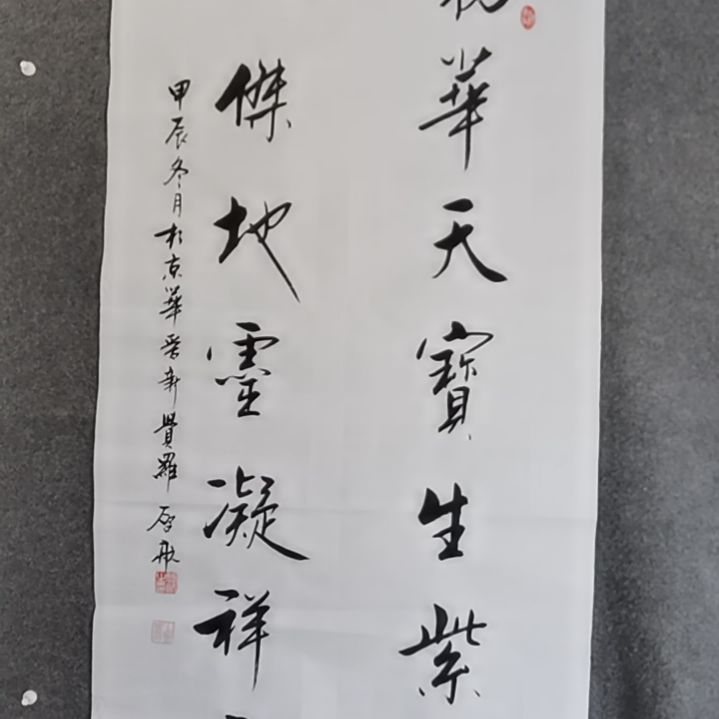 華天寶生紫
傑地靈凝祥
甲辰冬月於京華愛新覺羅